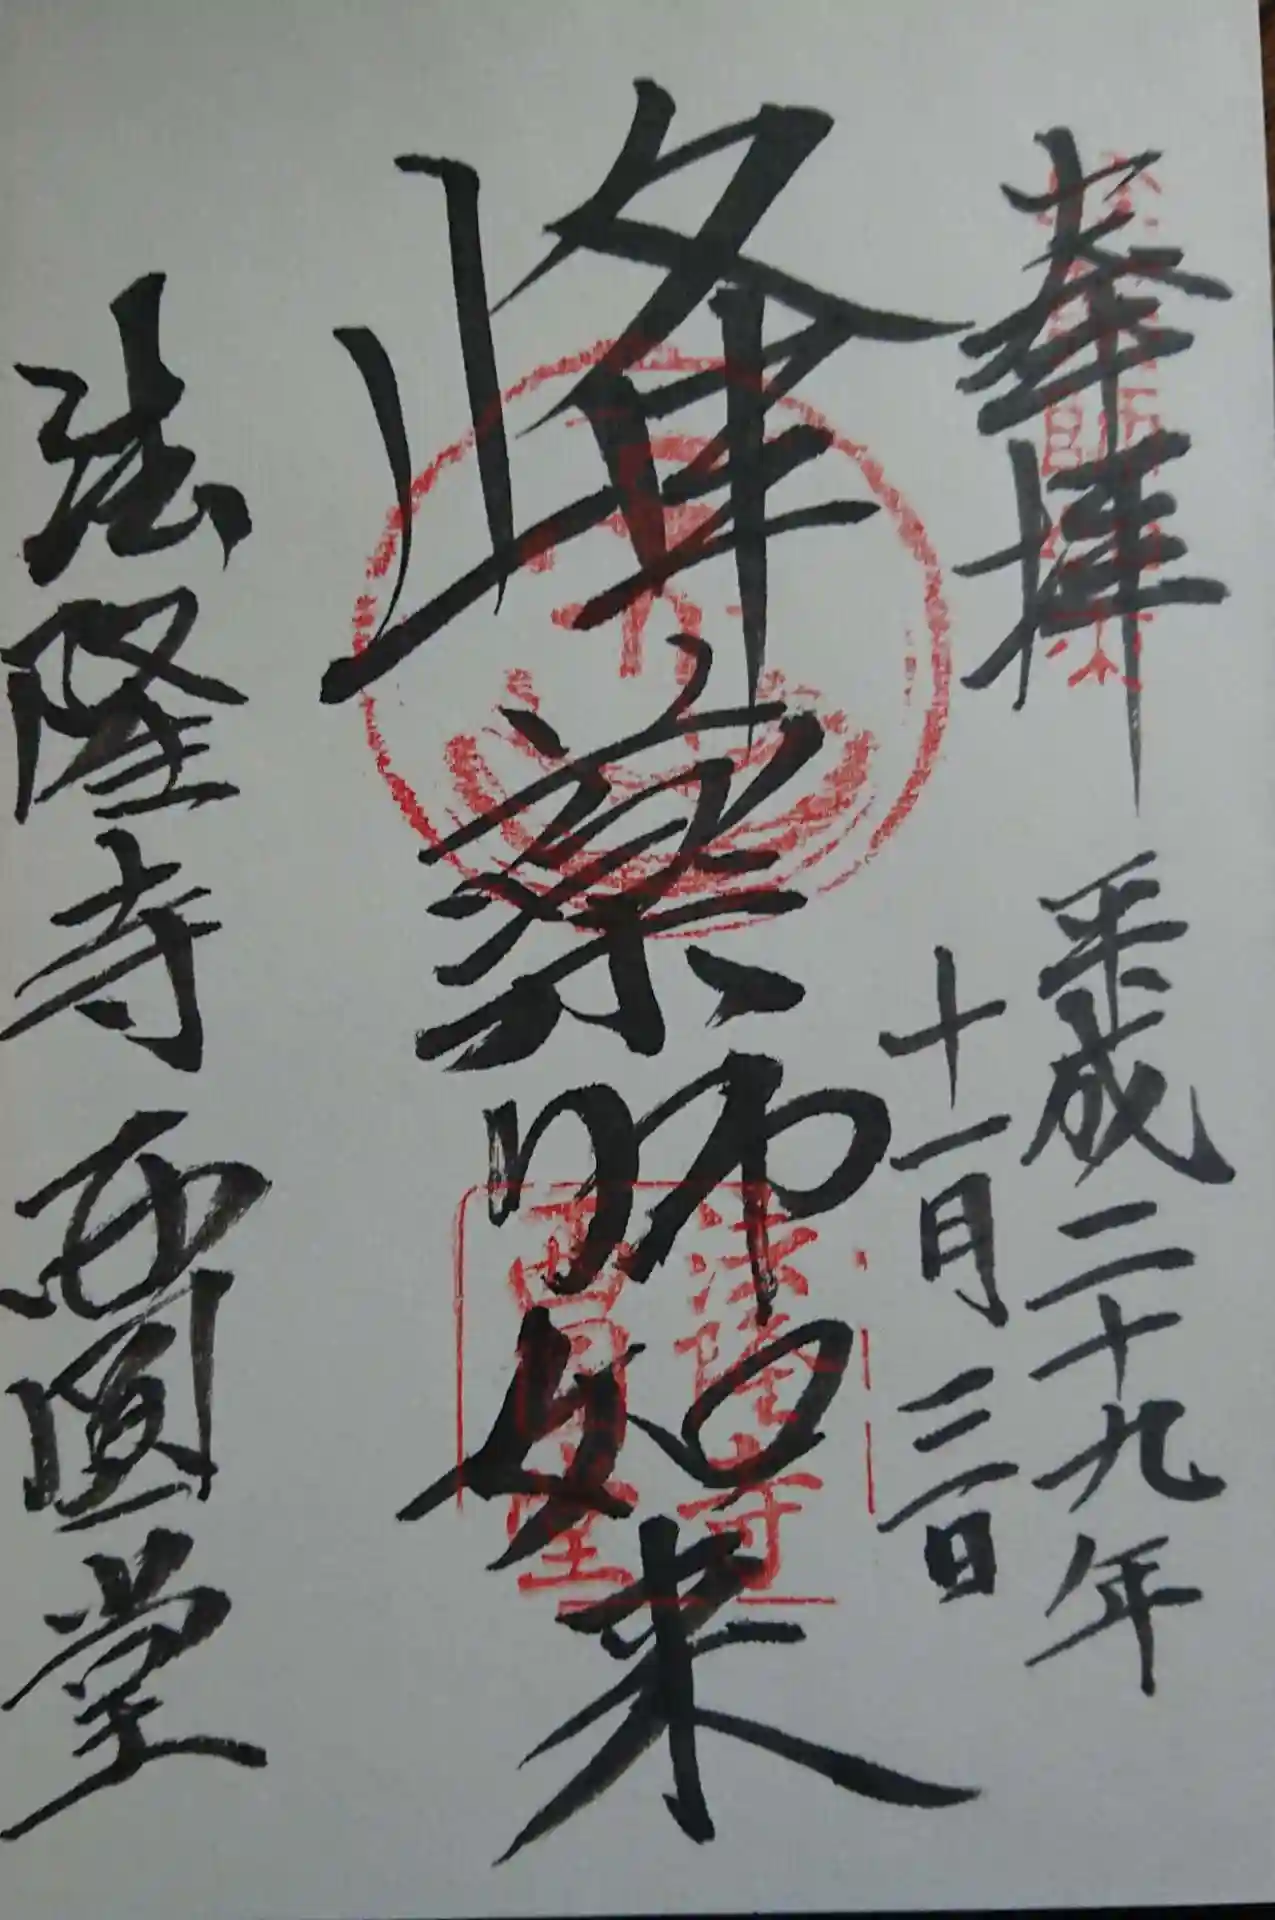 奉拝
平成二十九年
十一月三日
峰薬師如来
法隆寺
西円堂
法隆寺西圓堂